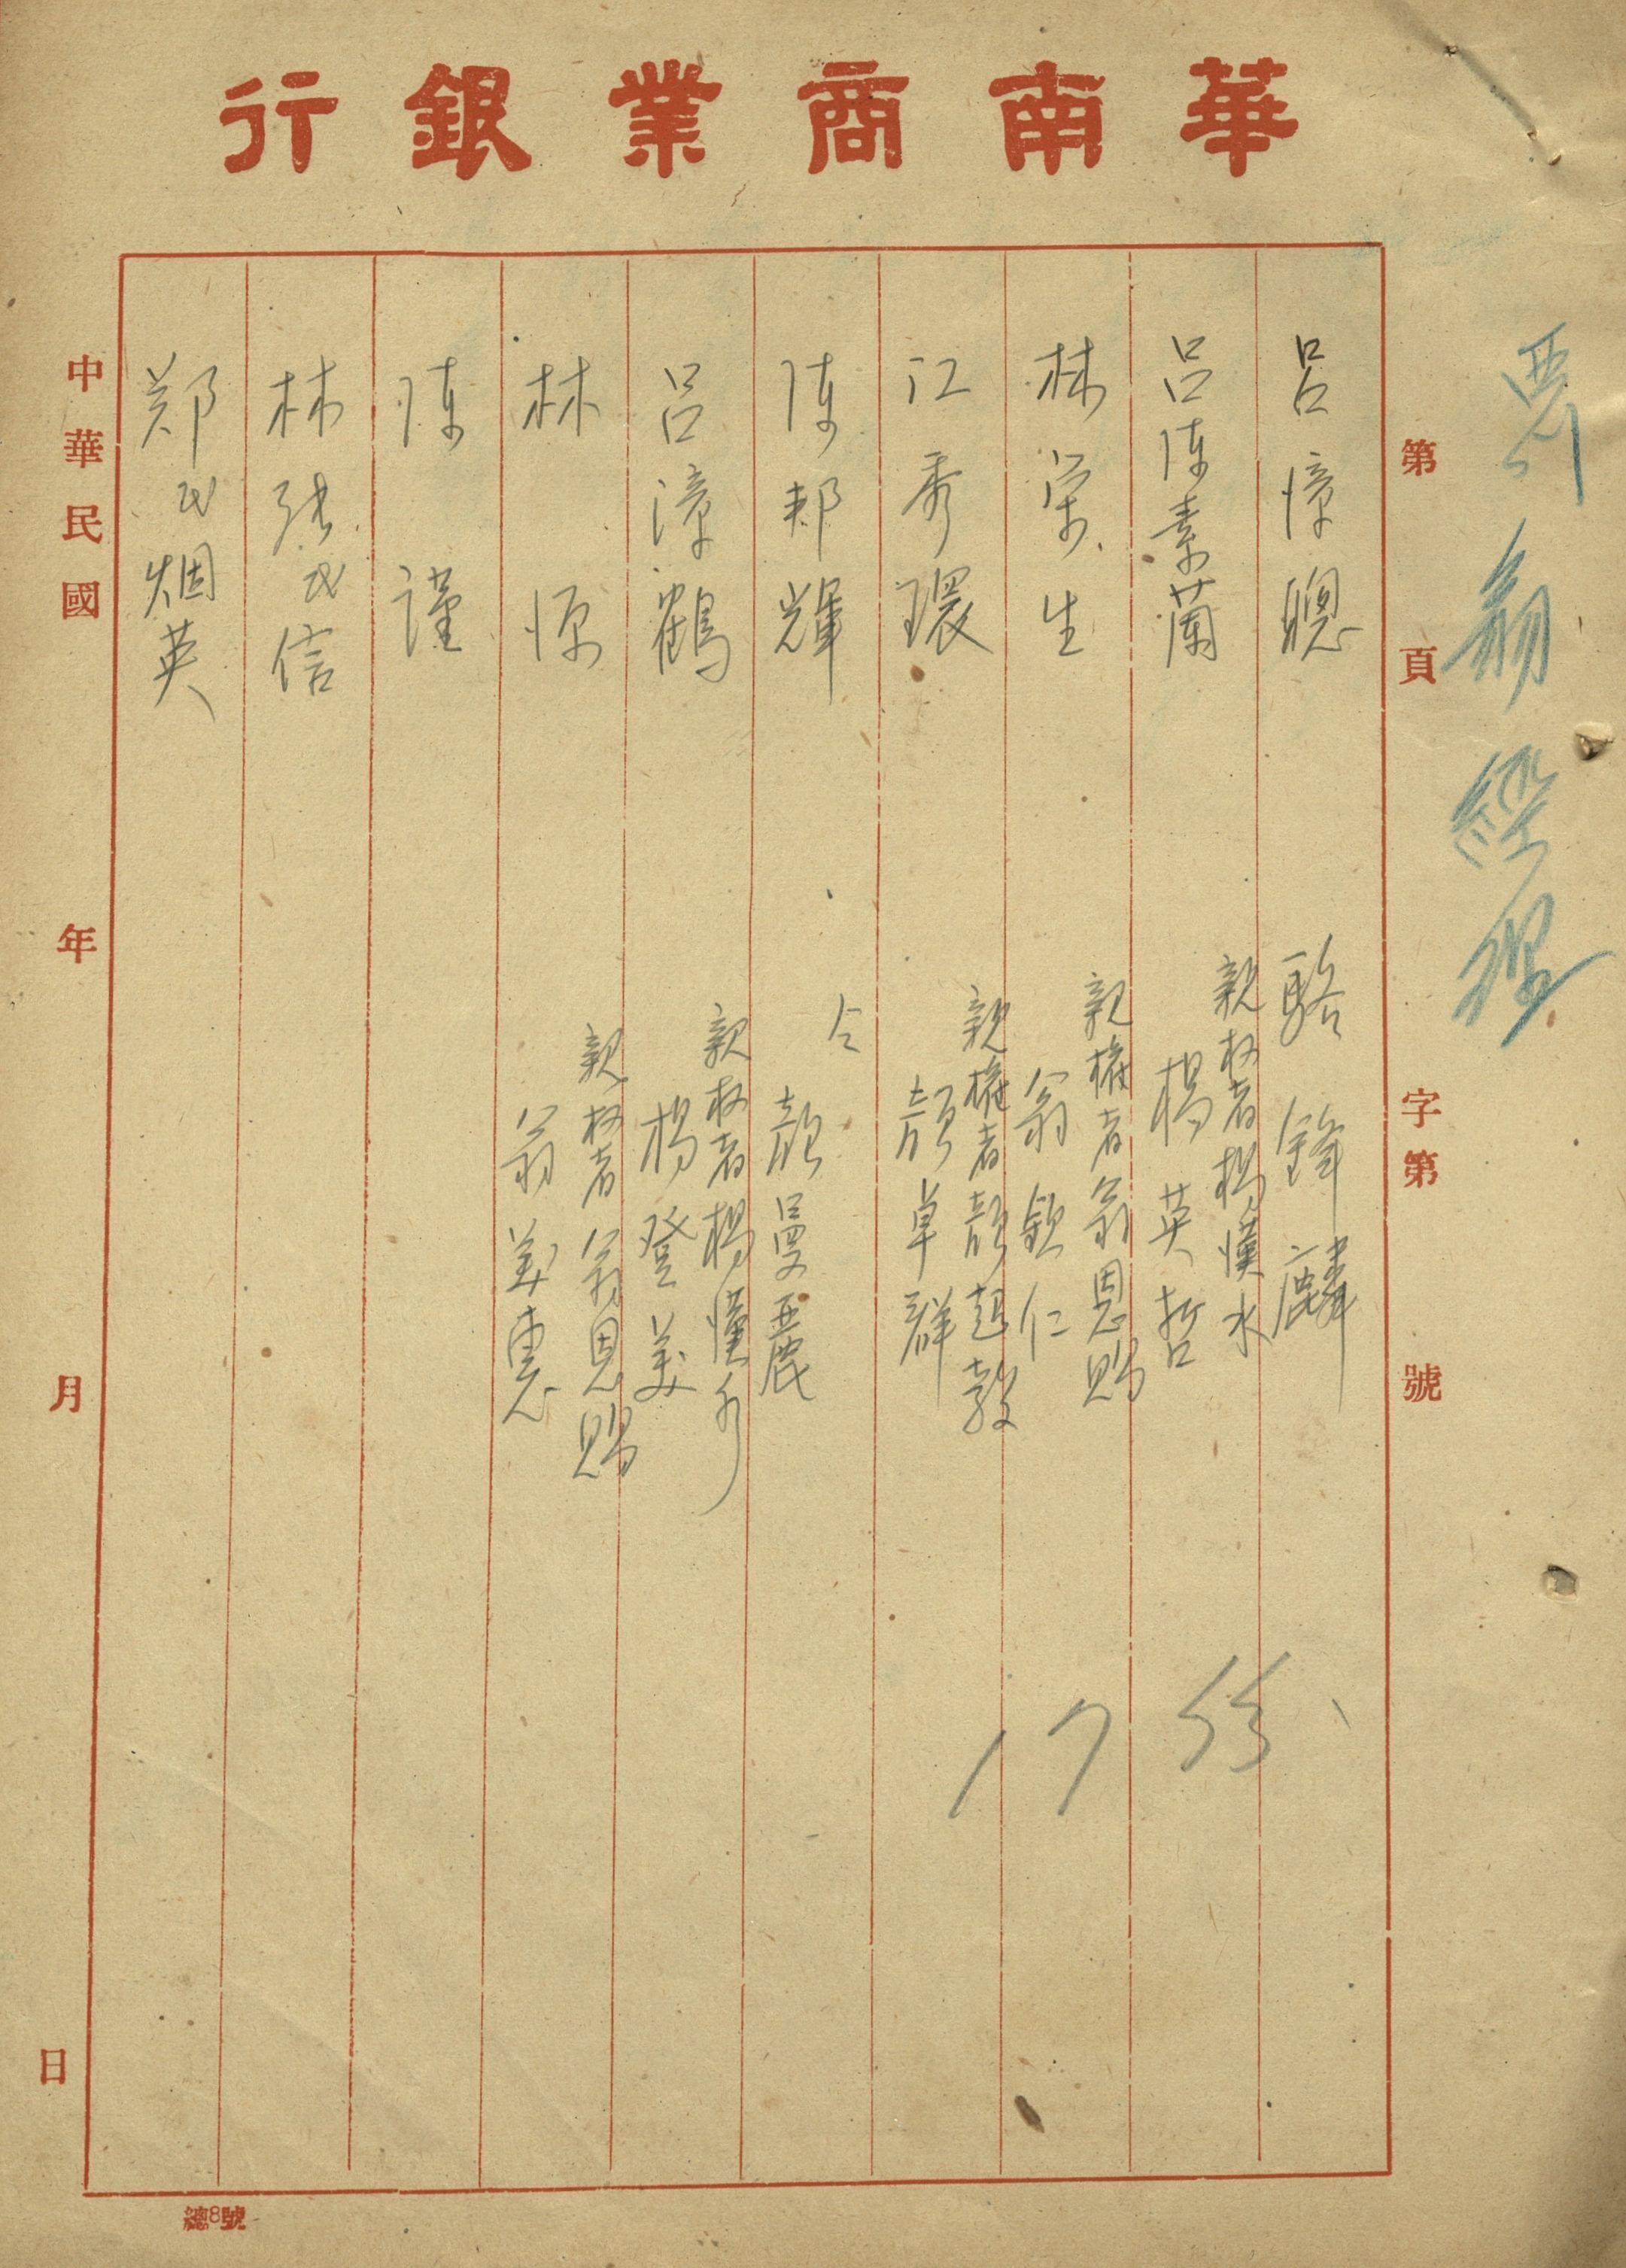 華南商業銀行
第 頁 字第 號
翁經理
呂漳聰
呂陳素蘭
林榮生
江秀環
陳邦輝
呂漳鶴
林源
陳謹
林張氏信
鄭氏烟英
駱鋒麟
親权者楊漢水
楊英哲
親権者翁恩賜
翁欽仁
親権者顏起教
顏卓群
仝
顏曼麗
親权者楊漢水
楊登美
親权者翁恩賜
翁美惠
17份
中華民國 年 月 日
總8號